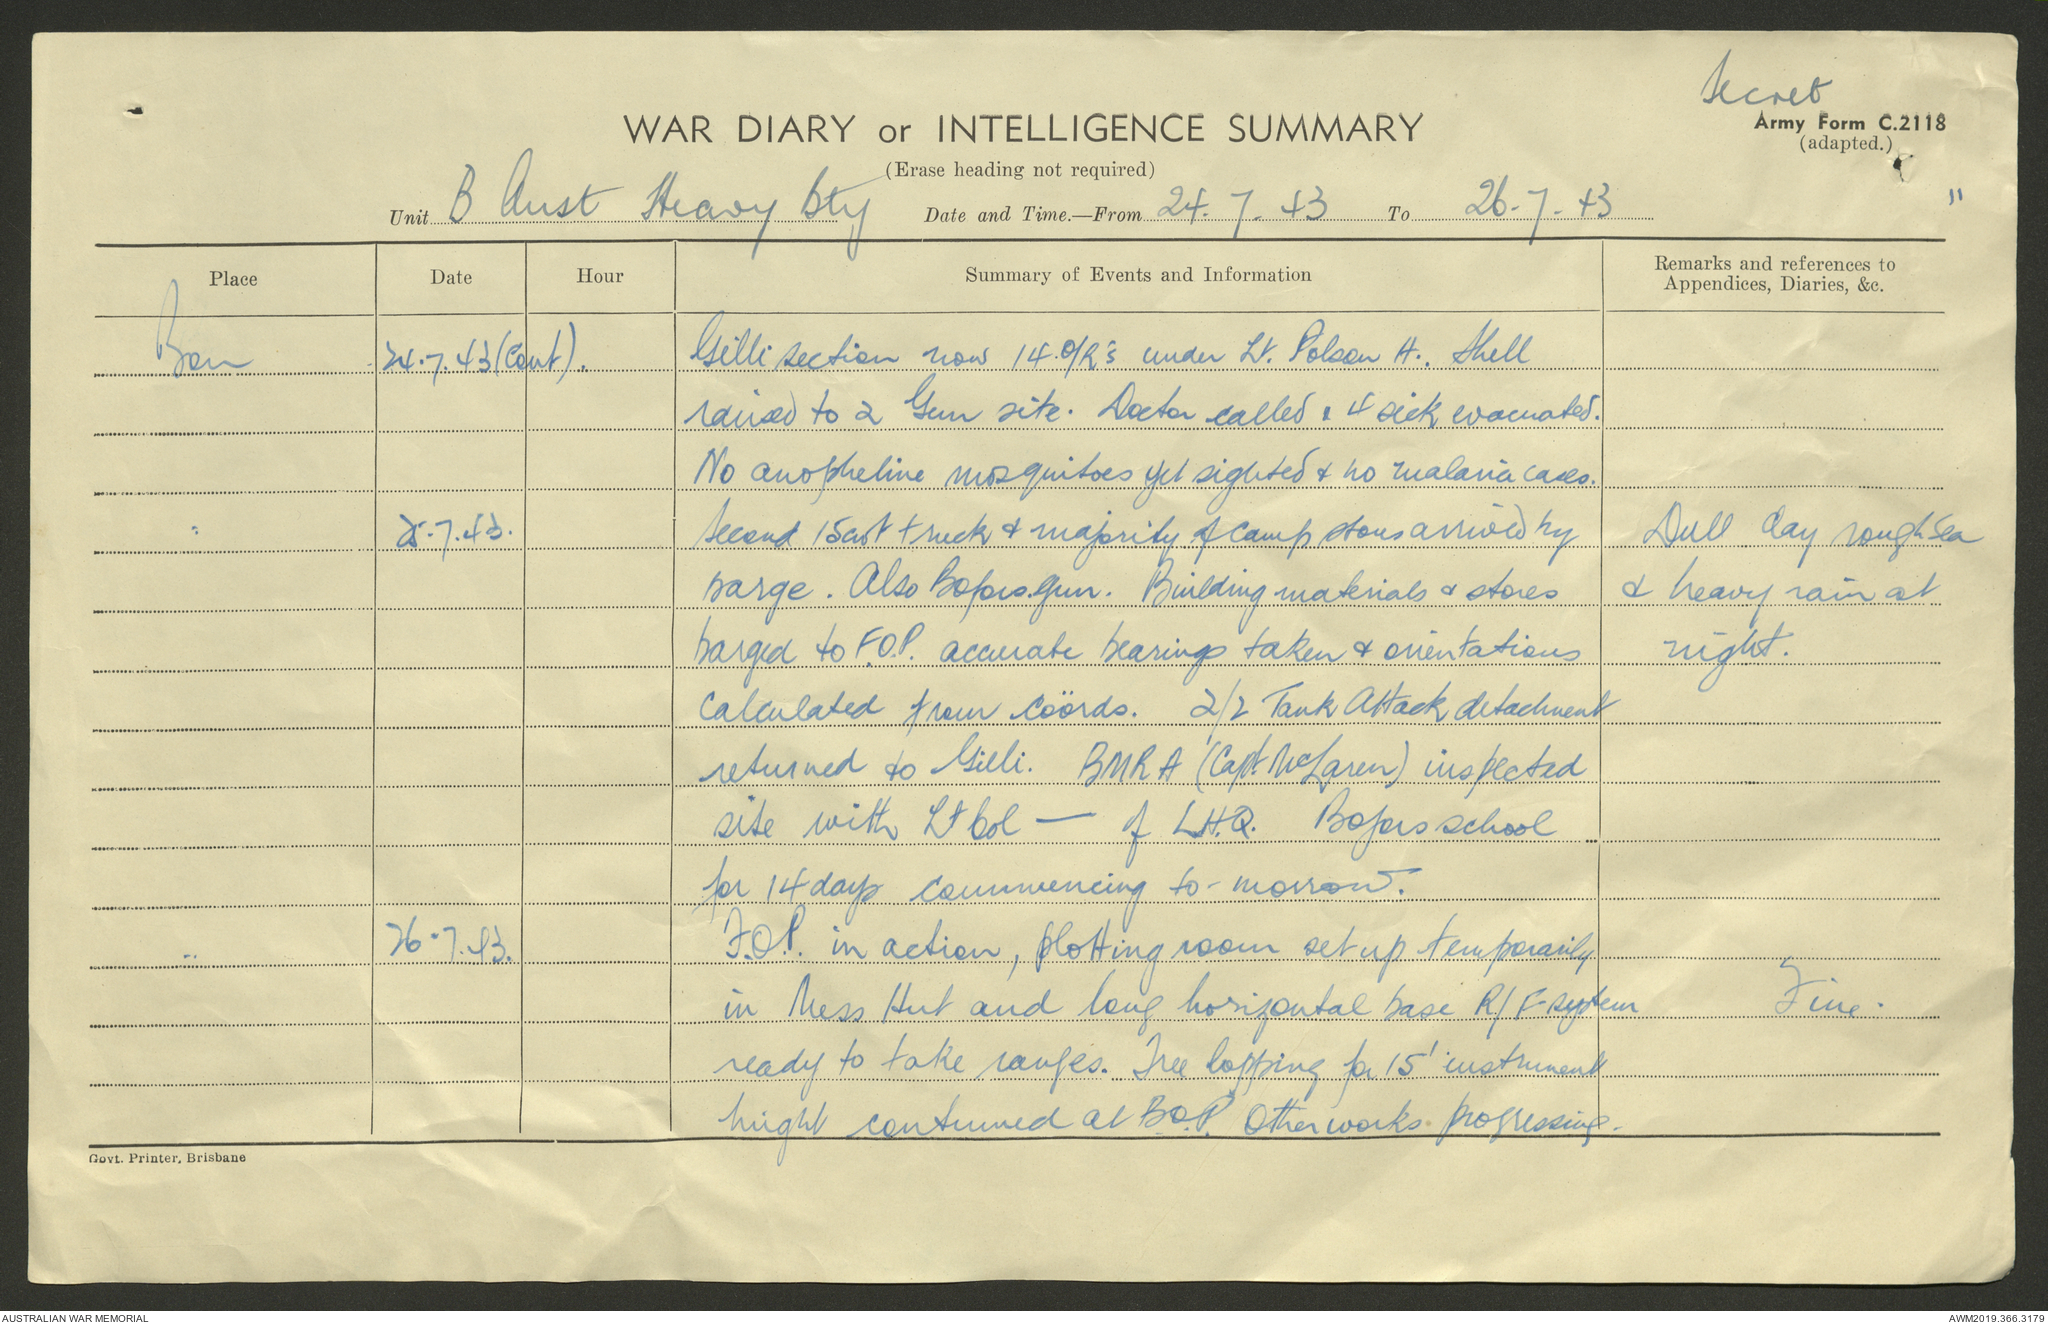 Secret
WAR DIARY or INTELLIGENCE SUMMARY
Army Form C.2118
(adapted.)
(Erase heading not required)
Unit B Aust Heavy Bty Date and Time.—From 24.7.43 To 26.7.43
11
Place Date Hour Summary of Events and Information Remarks and references to
Appendices, Diaries, &c.
24.7.43 (Cont). Gilli section now 14 O/R's under Lt. Polson H.. Shell
raised to 2 Gun site. Doctor called & 4 sick evacuated.
No anopheline mosquitoes yet sighted & no malaria cases.
" 25.7.43. Second 15cwt truck & majority of camp stores arrived by Dull day rough sea
barge. Also Bofors gun. Building materials & stores & heavy rain at
barged to F.O.P. accurate bearings taken & orientations night.
calculated from coörds. 2/2 Tank Attack detachment
returned to Gilli. BMRA (Capt McLaren) inspected
site with Lt Col — of L.H.Q. Bofors school
for 14 days commencing to-morrow.
" 26.7.43. F.O.P. in action, plotting room set up temporarily
in Mess Hut and long horizontal base R/F system Fine.
ready to take ranges. Tree lopping for 15' instrument
hight continued at B.O.P. Other works progressing.
Govt. Printer, Brisbane
AUSTRALIAN WAR MEMORIAL
AWM2019.366.3179